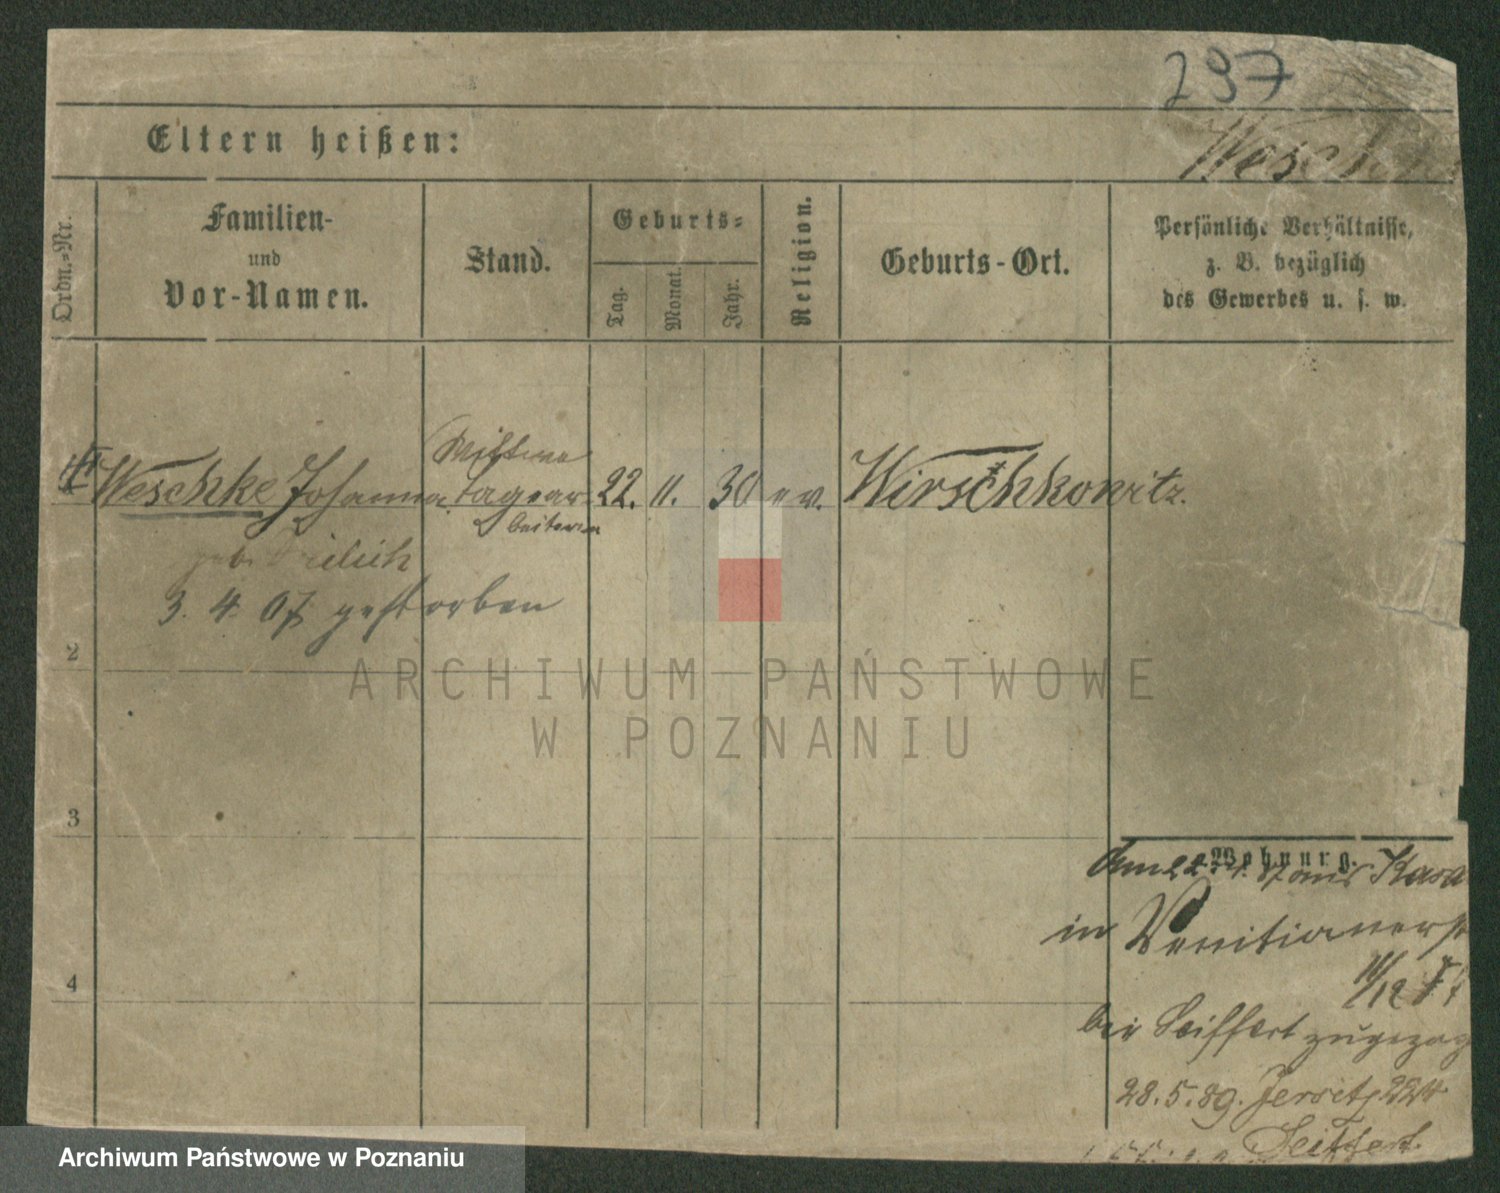 297
Eltern heißen:
Weschke
Ordn.-Nr.
Familien-
und
Vor-Namen.
Stand.
Geburts-
Tag.
Monat.
Jahr.
Religion.
Geburts-Ort.
Persönliche Verhältnisse,
z. B. bezüglich
des Gewerbes u. s. w.
Wittwe
Weschke Johanna Tagear- 22. 11. 30 ev. Wirschkowitz.
beiterin
geb.
3. 4. 07 gestorben
2
3
4
Wohnung.
in Venitianerst
11/12
bei Seiffert zugezog
28.5.89. Jersitz 224
Seiffert.
ARCHIWUM PAŃSTWOWE
W POZNANIU
Archiwum Państwowe w Poznaniu